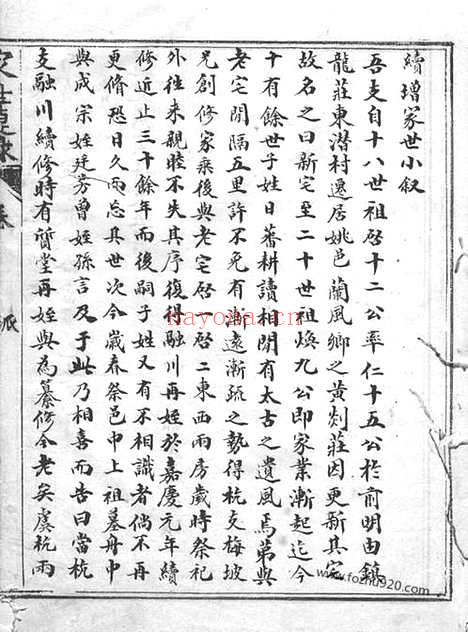 續增家世小叙
吾支自十八世祖啓十二公率仁十五公於前明由鎮
龍莊東潛村遷居姚邑蘭風鄉之黄剡莊因更新其宅
故名之曰新宅至二十世祖煥九公即家業漸起迄今
十有餘世子姓日蕃耕讀相閒有太古之遺風焉第與
老宅間隔五里許不免有漸遠漸疏之勢得杭支梅坡
兄創修家乘後與老宅啓二東西兩房歲時祭祀
外往来親睦不失其序復得融川再姪於嘉慶元年續
修近止三十餘年而後嗣子姓又有不相識者倘不再
更脩恐日久而忘其世次今歲春祭邑中上祖墓舟中
與成宗姪廷芳曽姪孫言及于此乃相喜而告曰當杭
支融川續修時有質堂再姪與為纂修今老矣虞杭兩
派
nayona.cn
www.fozhu920.com